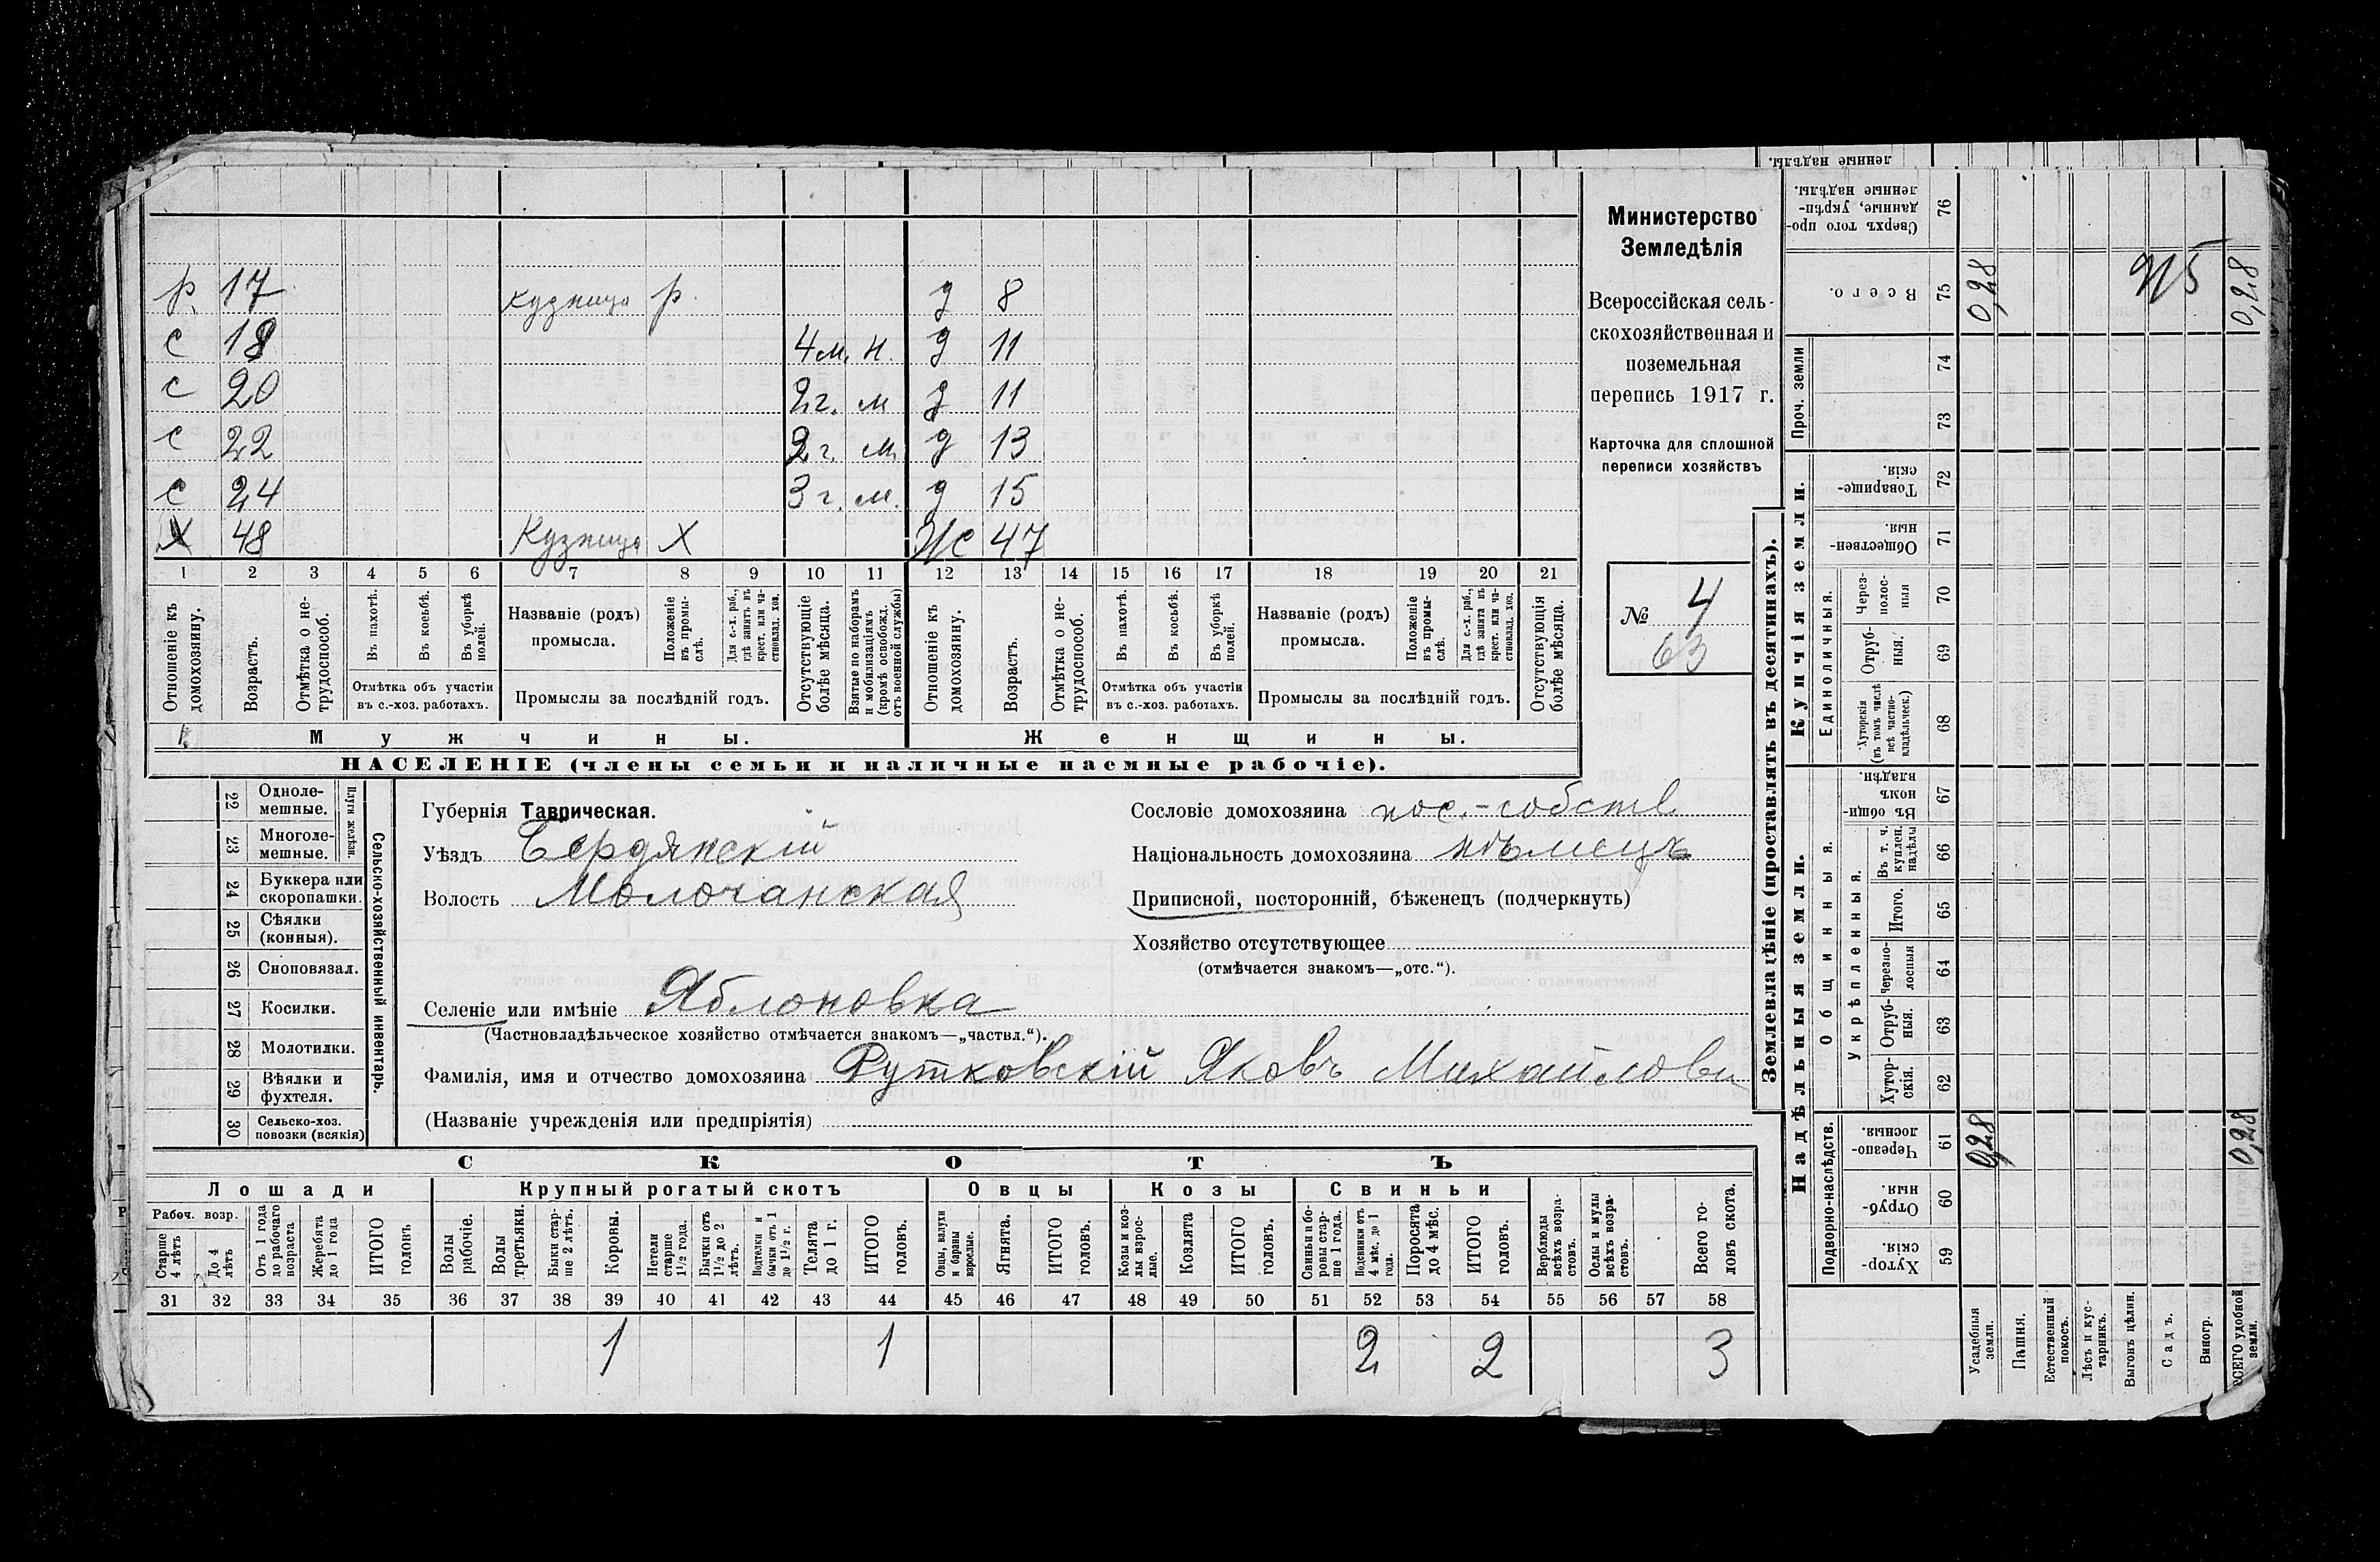 р. 17 кузница р. д 8
с 18 4 м. н. д 11
с 20 2 г. м д 11
с 22 2 г. м. д 13
с 24 3 г. м. д 15
Х 48 Кузница Х Ж 47
1 2 3 4 5 6 7 8 9 10 11 12 13 14 15 16 17 18 19 20 21
Отношеніе къ домохозяину.
Возрастъ.
Отмѣтка о не-трудоспособ.
Въ пахотѣ.
Въ косьбѣ.
Въ уборкѣ полей.
Отмѣтка объ участіи
въ с.-хоз. работахъ.
Названіе (родъ)
промысла.
Положеніе въ промы-слѣ.
Для с.-х. раб., гдѣ занятъ въ крест. или ча-стновлад. хоз.
Промыслы за послѣдній годъ.
Отсутствующіе болѣе мѣсяца.
Взятые по наборамъ и мобилизаціямъ (кромѣ освобожд. отъ военной службы)
Отношеніе къ домохозяину.
Возрастъ.
Отмѣтка о не-трудоспособ.
Въ пахотѣ.
Въ косьбѣ.
Въ уборкѣ полей.
Отмѣтка объ участіи
въ с.-хоз. работахъ.
Названіе (родъ)
промысла.
Положеніе въ промы-слѣ.
Для с.-х. раб., гдѣ занятъ въ крест. или ча-стновлад. хоз.
Промыслы за послѣдній годъ.
Отсутствующія болѣе мѣсяца.
Мужчины. Женщины.
НАСЕЛЕНІЕ (члены семьи и наличные наемные рабочіе).
Министерство
Земледѣлія
Всероссійская сель-
скохозяйственная и
поземельная
перепись 1917 г.
Карточка для сплошной
переписи хозяйствъ
№ 4
63
22 Одноле-мешные.
23 Многоле-мешные.
Плуги желѣзн.
24 Буккера или скоропашки.
25 Сѣялки (конныя).
26 Сноповязал.
27 Косилки.
28 Молотилки.
29 Вѣялки и фухтеля.
30 Сельско-хоз. повозки (всякія)
Сельско-хозяйственный инвентарь.
Губернія Таврическая.
Уѣздъ Бердянскій
Волость Молочанская
Сословіе домохозяина пос.-собств.
Національность домохозяина нѣмецъ
Приписной, посторонній, бѣженецъ (подчеркнуть)
Хозяйство отсутствующее
(отмѣчается знакомъ—„отс.“).
Селеніе или имѣніе Яблоновка
(Частновладѣльческое хозяйство отмѣчается знакомъ—„частвл.“).
Фамилія, имя и отчество домохозяина Рутковскій Яковъ Михайлови
(Названіе учрежденія или предпріятія)
СКОТЪ
Лошади Крупный рогатый скотъ Овцы Козы Свиньи
Рабоч. возр.
Старше 4 лѣтъ
До 4 лѣтъ
Отъ 1 года до рабочаго возраста
Жеребята до 1 года
ИТОГО головъ
Волы рабочіе.
Волы третьяки.
Быки стар-ше 2 лѣтъ.
Коровы.
Нетели старше 1½ года.
Бычки отъ 1½ до 2 лѣтъ.
Подтелки и бычки отъ 1 до 1½ г.
Телята до 1 г.
ИТОГО головъ.
Овцы, валухи и бараны взрослые.
Ягнята.
ИТОГО головъ.
Козы и коз-лы взрос-лые.
Козлята
ИТОГО головъ.
Свиньи и бо-ровы стар-ше 1 года.
Подсвинки отъ 4 мѣс. до 1 года.
Поросята до 4 мѣс.
ИТОГО головъ.
Верблюды всѣхъ возра-стовъ.
Ослы и мулы всѣхъ возра-стовъ.
Всего го-ловъ скота.
31 32 33 34 35 36 37 38 39 40 41 42 43 44 45 46 47 48 49 50 51 52 53 54 55 56 57 58
1 1 2 2 3
Землевладѣніе (проставлять въ десятинахъ).
ленные надѣлы.
Сверхъ того про-данные, укрѣп-ленные надѣлы. 76
Всего. 75 0,28 0,28
Проч. земли 74
73
Купчія земли.
Товарище-скія. 72
Обществен-ныя. 71
Единоличныя.
Через-полос-ныя 70
Отруб-ныя. 69
Хуторскія (въ томъ числѣ всѣ частно-владѣльческ.) 68
Надѣльныя земли.
Общинныя.
Въ общи-номъ владѣн. 67
Укрѣпленныя.
Въ т. ч. куплен. надѣлы 66
Итого. 65
Черезпо-лосныя 64
Отруб-ныя. 63
Хутор-скія. 62
Подворно-наслѣдств.
Черезпо-лосныя. 61 0,28 0,28
Отруб-ныя. 60
Хутор-скія. 59
Усадебныя земли.
Пашня.
Естественный покосъ.
Лѣсъ и кус-тарникъ.
Выгонъ цѣлин.
Садъ.
Виногр.
ВСЕГО удобной земли.